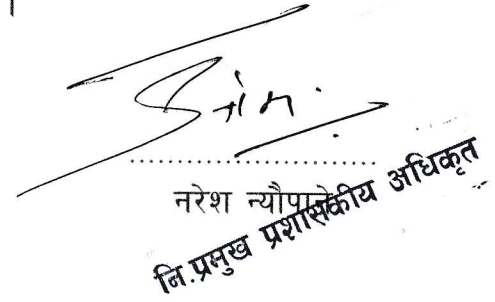 नरेश न्यौपाने
नि.प्रमुख प्रशासकीय अधिकृत